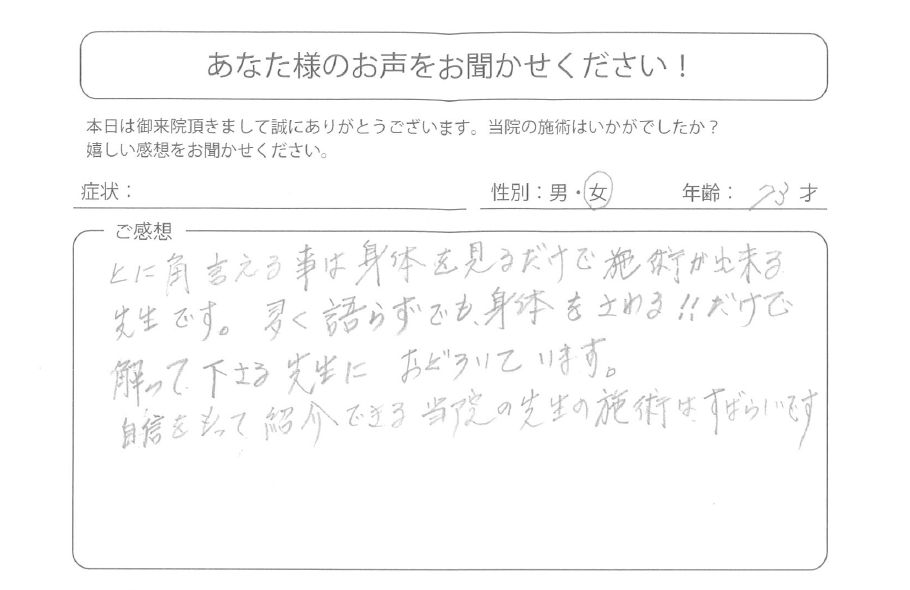 あなた様のお声をお聞かせください！
本日は御来院頂きまして誠にありがとうございます。当院の施術はいかがでしたか？
嬉しい感想をお聞かせください。
症状： 性別：男・女 年齢： 73 才
ご感想
とに角言える事は身体を見るだけで施術が出来る
先生です。多く語らずでも、身体をさわる!!だけで
解って下さる先生に おどろいています。
自信をもって紹介できる当院の先生の施術は、すばらしいです